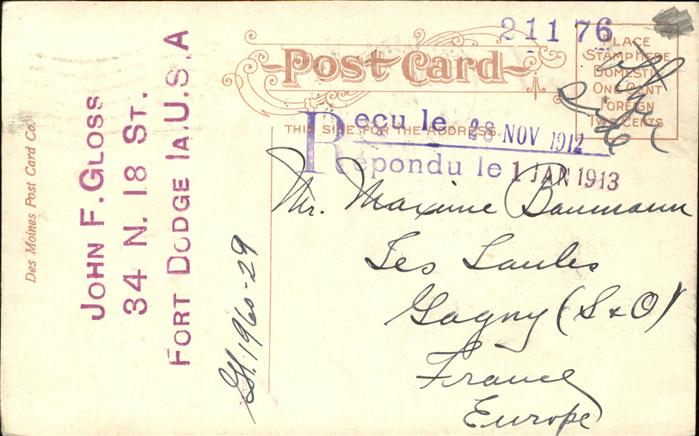 21176
Post Card
PLACE
STAMP HERE
DOMESTIC
ONE CENT
FOREIGN
TWO CENTS
THIS SIDE FOR THE ADDRESS.
Reçu le 28 NOV 1912
Répondu le 1 JAN 1913
Mr. Maxime Baumann
Les Saules
Gagny (S&O)
France
Europe
JOHN F. GLOSS
34 N. 18 ST.
FORT DODGE IA. U.S.A
Des Moines Post Card Co.
1960-29